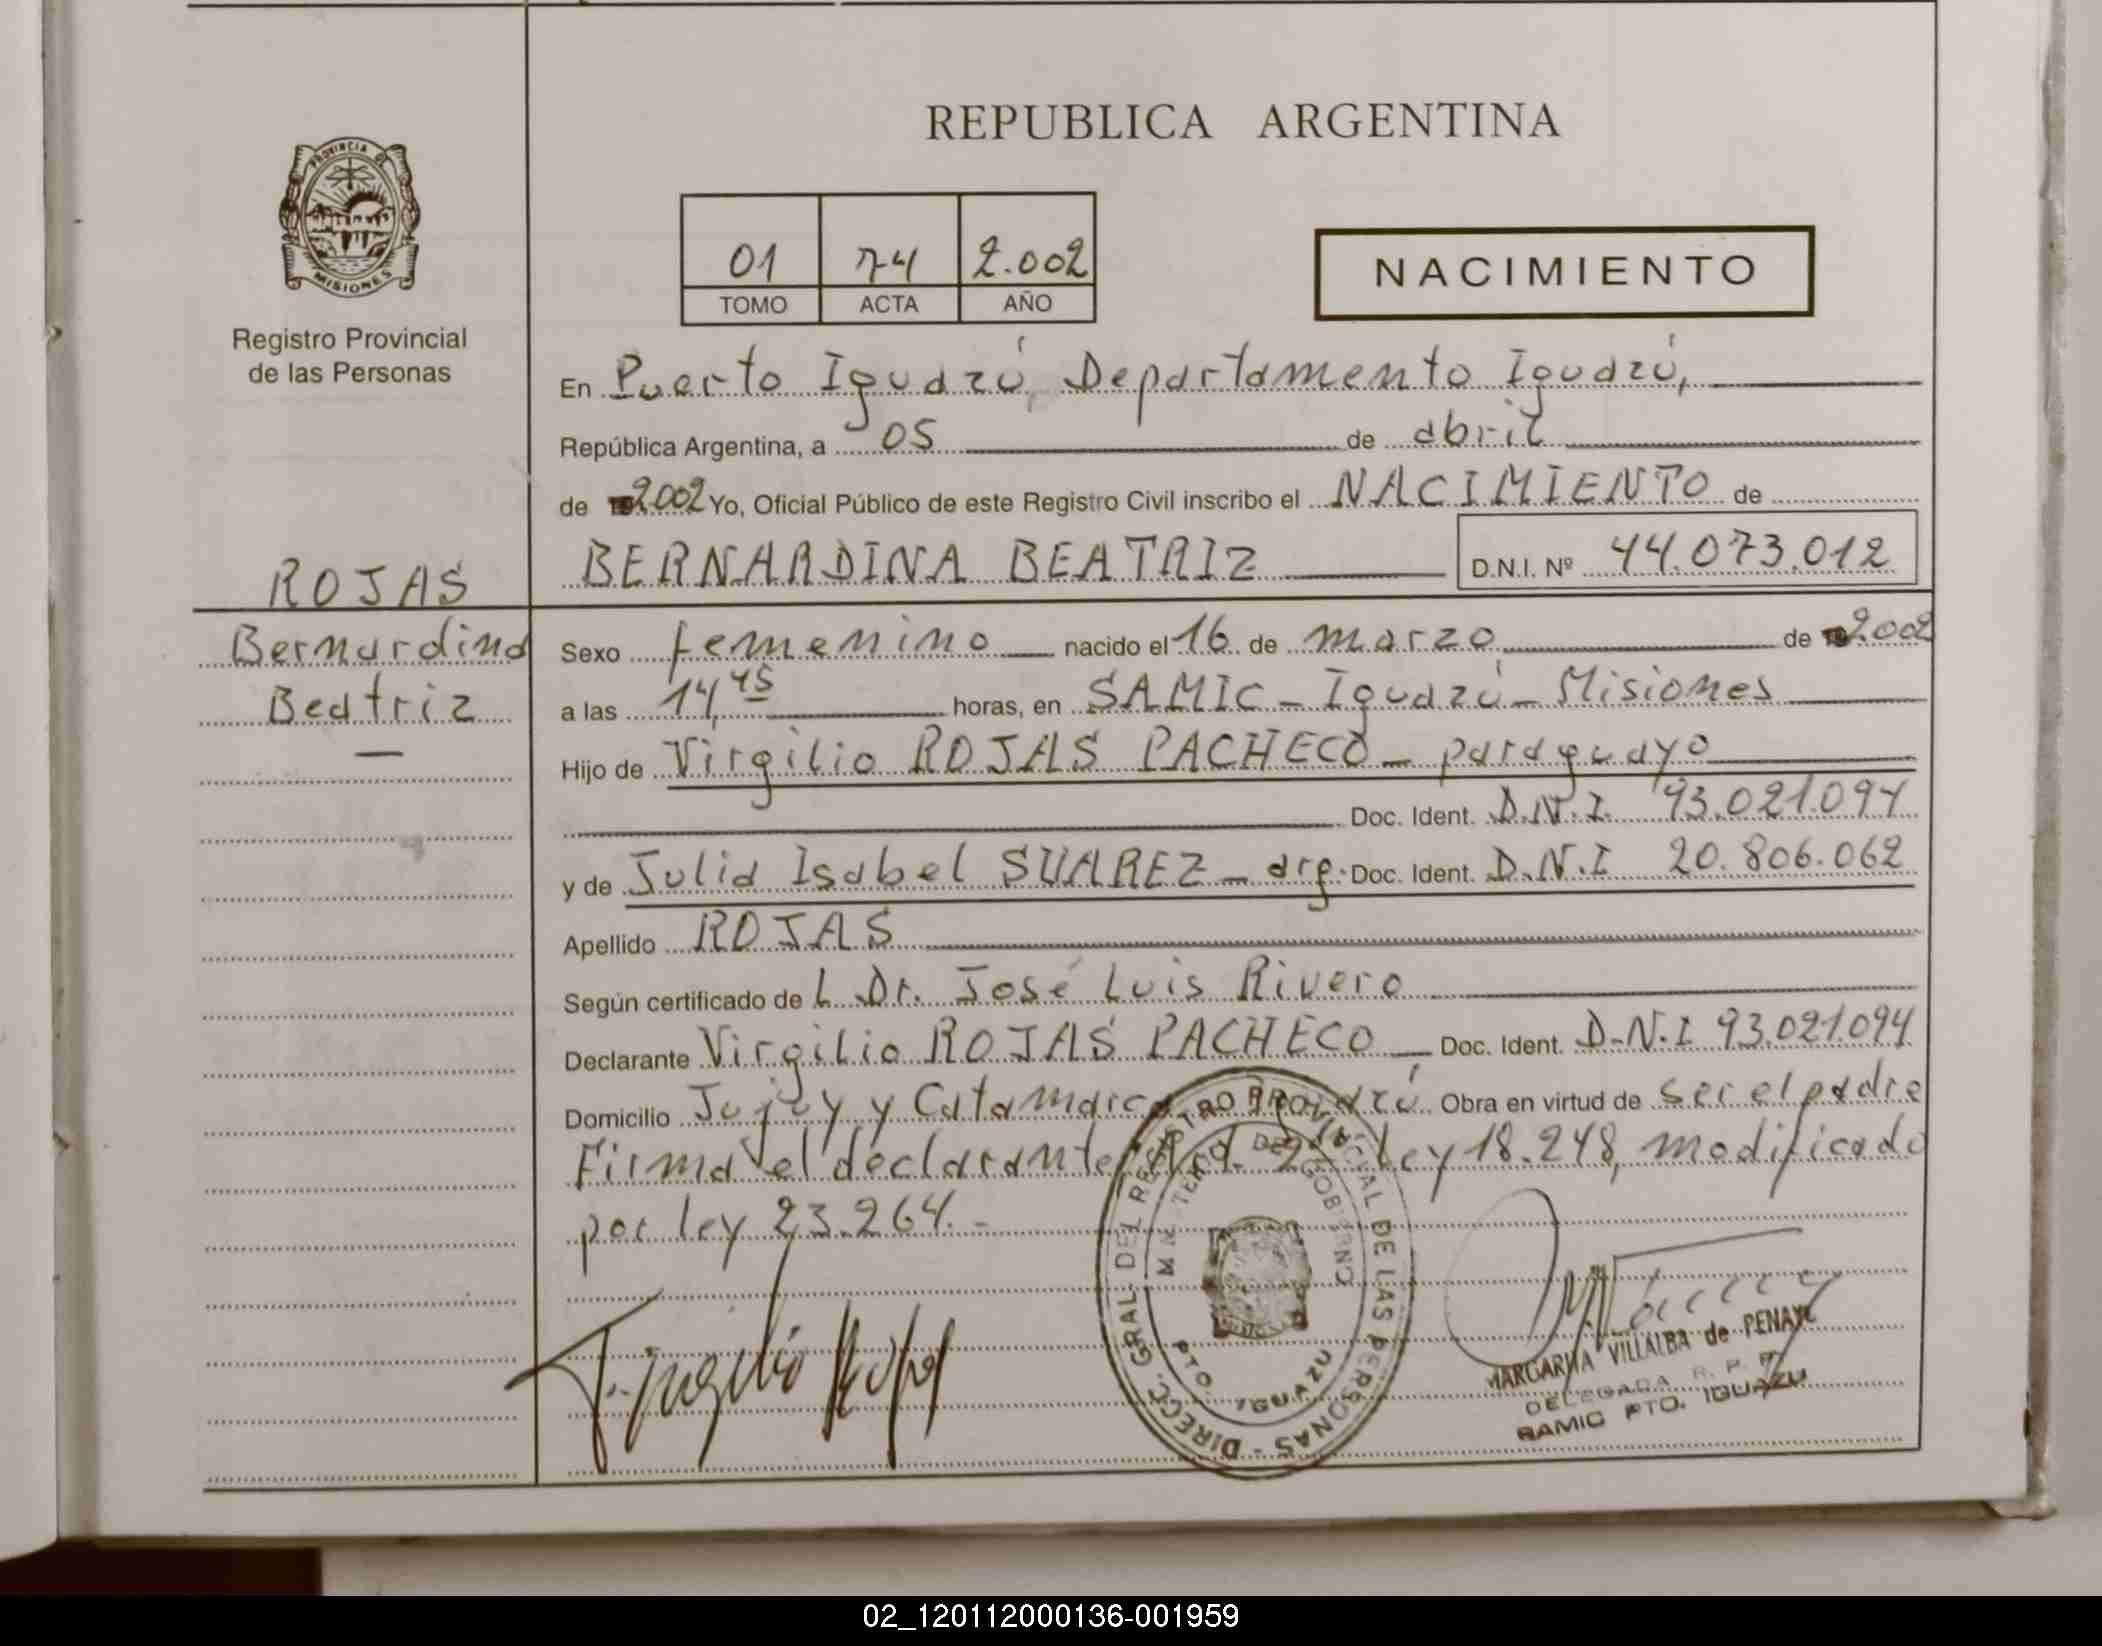 REPUBLICA ARGENTINA
PROVINCIA DE
MISIONES
Registro Provincial
de las Personas
01 74 2.002
TOMO ACTA AÑO
NACIMIENTO
En Puerto Iguazú, Departamento Iguazú,
República Argentina, a 05 de abril
de 2002 Yo, Oficial Público de este Registro Civil inscribo el NACIMIENTO de
BERNARDINA BEATRIZ D.N.I. Nº 44.073.012
ROJAS
Bernardina
Beatriz
Sexo femenino nacido el 16 de marzo de 2.002
a las 14,45 horas, en SAMIC - Iguazú - Misiones
Hijo de Virgilio ROJAS PACHECO - paraguayo
Doc. Ident. D.N.I 93.021.094
y de Julia Isabel SUAREZ - arg. Doc. Ident. D.N.I 20.806.062
Apellido ROJAS
Según certificado de L Dr. José Luis Rivero
Declarante Virgilio ROJAS PACHECO Doc. Ident. D.N.I 93.021.094
Domicilio Jujuy y Catamarca Obra en virtud de ser el padre
Firma el declarante Ley 18.248, modificado
por ley 23.264.-
DIRECC. GRAL. DEL REGISTRO PROVINCIAL DE LAS PERSONAS -
MINISTERIO DE GOBIERNO
PTO. IGUAZU
Virgilio Rojas
MARGARITA VILLALBA de PENAYO
DELEGADA R. P. P.
SAMIC PTO. IGUAZU
02_120112000136-001959